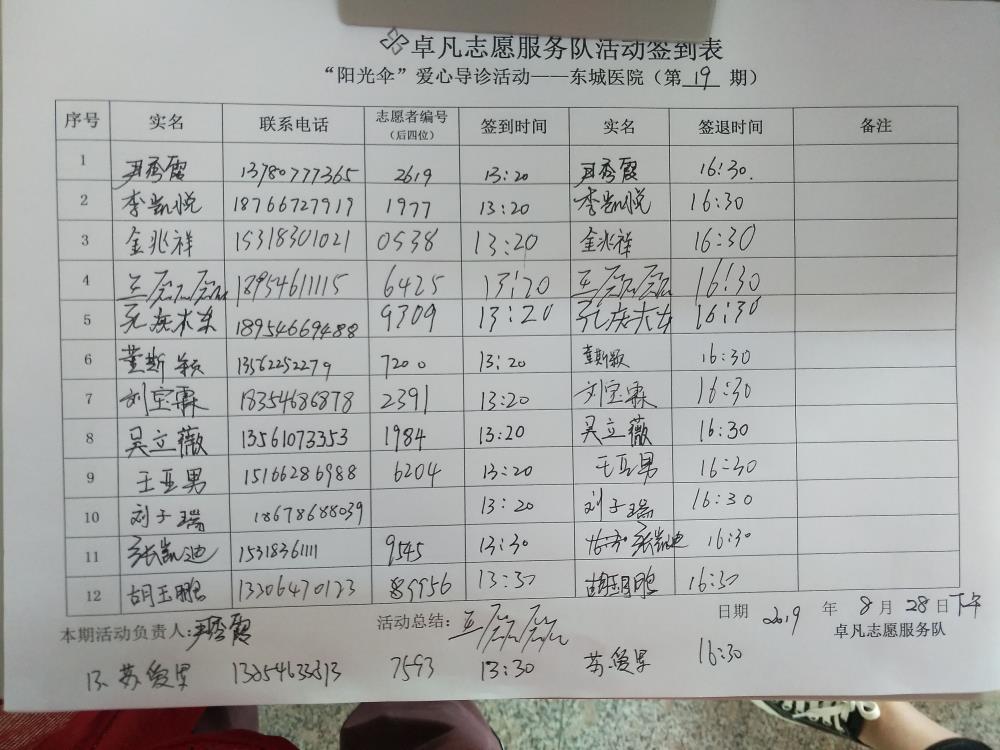 卓凡志愿服务队活动签到表
“阳光伞”爱心导诊活动——东城医院（第 19 期）
序号 实名 联系电话 志愿者编号（后四位） 签到时间 实名 签退时间 备注
1 尹秀霞 13780777365 2619 13:20 尹秀霞 16:30.
2 李凯悦 18766727919 1977 13:20 李凯悦 16:30
3 金兆祥 15318301021 0538 13:20 金兆祥 16:30
4 18954611115 6425 13:20 16:30
5 18954669488 9309 13:20 16:30
6 董斯颖 13562252279 7200 13:20 董斯颖 16:30
7 刘宝霖 18354686878 2391 13:20 刘宝霖 16:30
8 吴立薇 13561073353 1984 13:20 吴立薇 16:30
9 王亚男 15166286988 6204 13:20 王亚男 16:30
10 刘子瑞 18678688039 13:20 刘子瑞 16:30
11 张凯迪 15318361111 9545 13:30 张凯迪 16:30
12 胡玉鹏 13206470123 89956 13:30 胡玉鹏 16:30
本期活动负责人:尹秀霞 活动总结: 日期 2019 年 8 月 28 日下午
卓凡志愿服务队
13. 苏爱军 7593 13:30 苏爱军 16:30